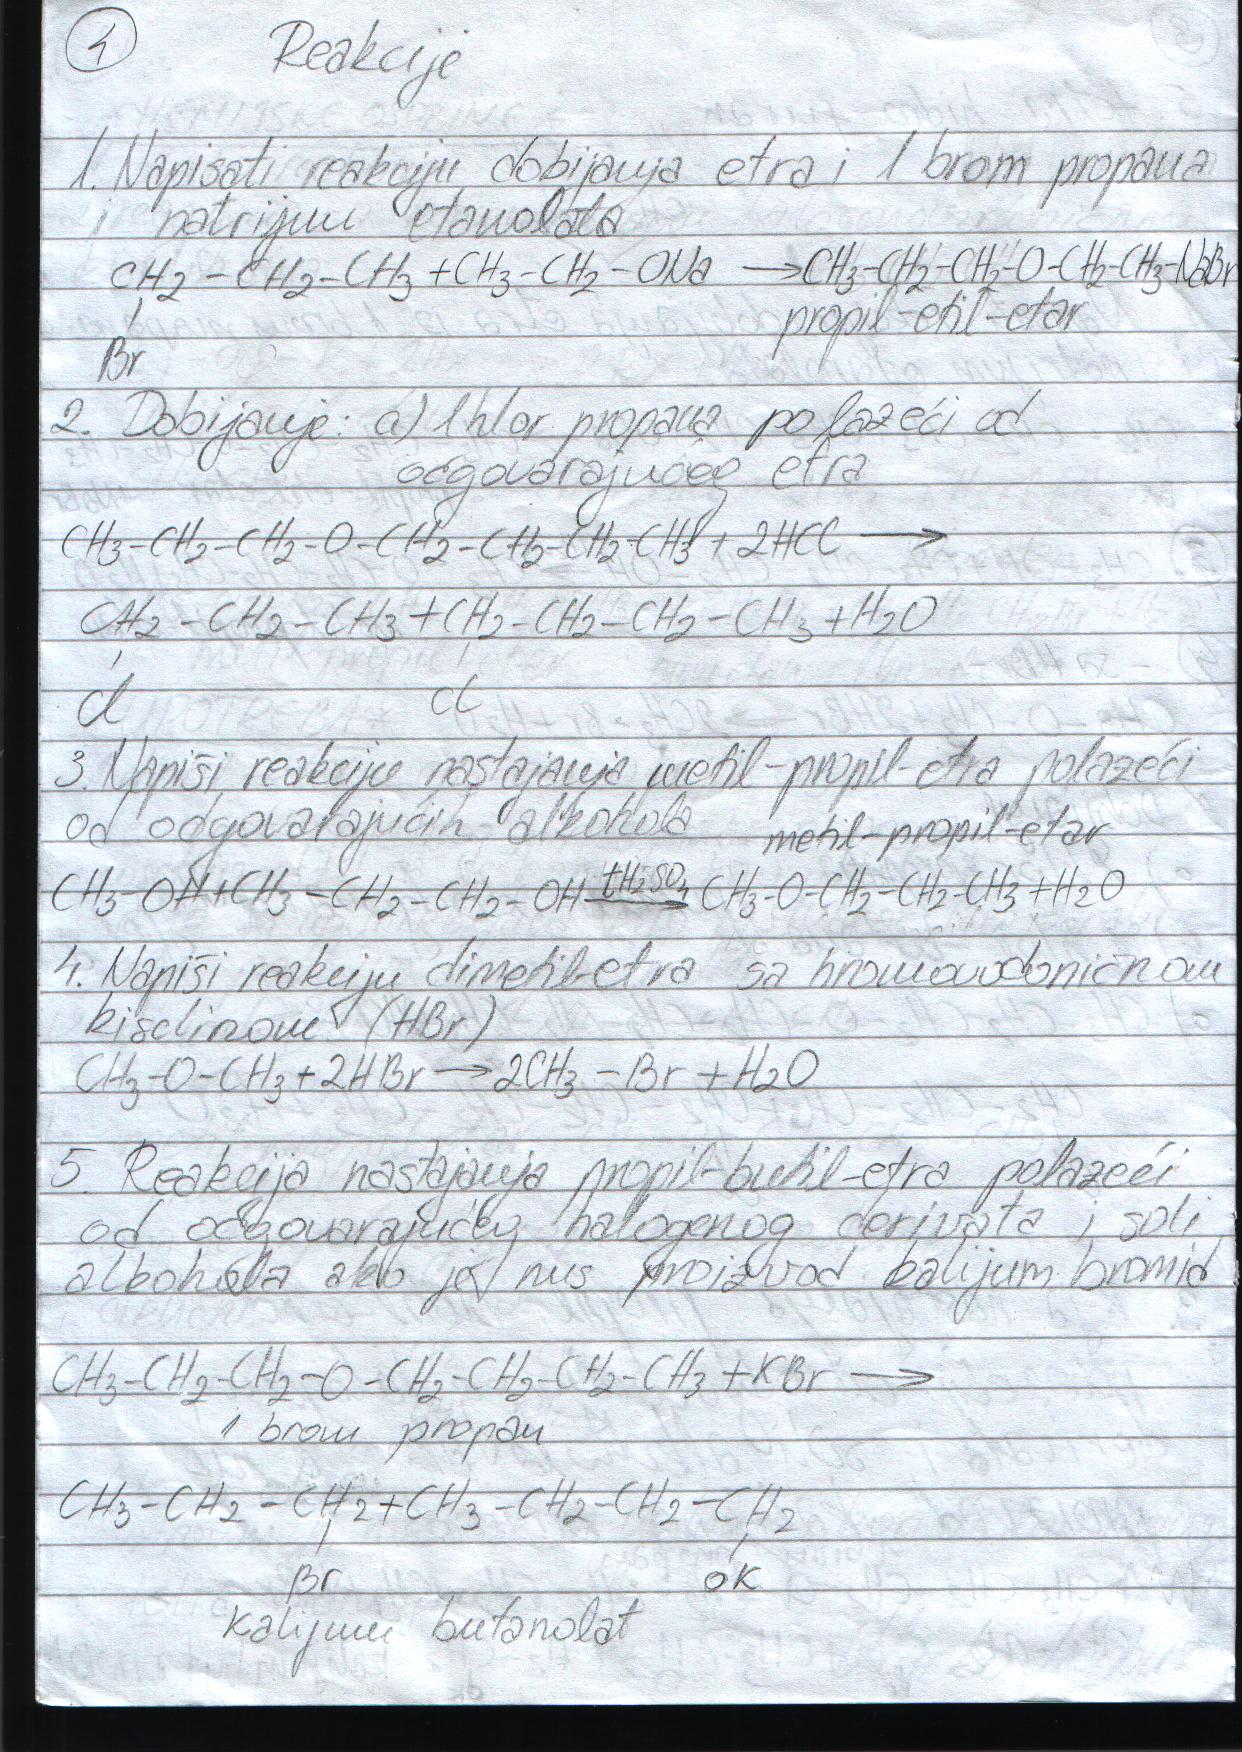 4
Reakcije
1. Napisati reakciju dobijanja etra i 1 brom propana
i natrijum etanolata
CH2 - CH2 - CH3 + CH3 - CH2 - ONa → CH3-CH2-CH2-O-CH2-CH3-NaBr
propil-etil-etar
Br
2. Dobijanje: a) 1 hlor propana polazeći od
odgovarajućeg etra
CH3-CH2-CH2-O-CH2-CH2-CH2-CH3 + 2HCl →
CH2 - CH2 - CH3 + CH2 - CH2 - CH2 - CH3 + H2O
Cl Cl
3. Napiši reakciju nastajanja metil-propil-etra polazeći
od odgovarajućih alkohola metil-propil-etar
CH3-OH + CH3 - CH2 - CH2 - OH tH2SO4→ CH3-O-CH2-CH2-CH3 + H2O
4. Napiši reakciju dimetil-etra sa bromovodoničnom
kiselinom (HBr)
CH3-O-CH3 + 2HBr → 2CH3 - Br + H2O
5. Reakcija nastajanja propil-butil-etra polazeći
od odgovarajućeg halogenog derivata i soli
alkohola ako je nus proizvod kalijum bromid
CH3-CH2-CH2-O-CH2-CH2-CH2-CH3 + KBr →
1 brom propan
CH3-CH2-CH2 + CH3-CH2-CH2-CH2
Br OK
kalijum butanolat